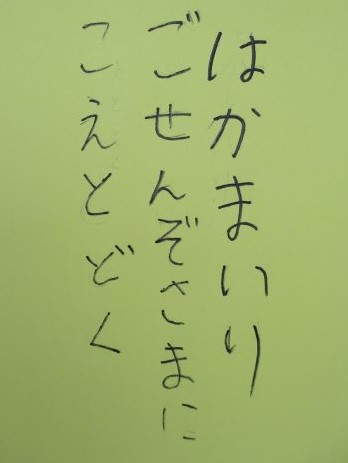 はかまいり
ごせんぞさまに
こえとどく